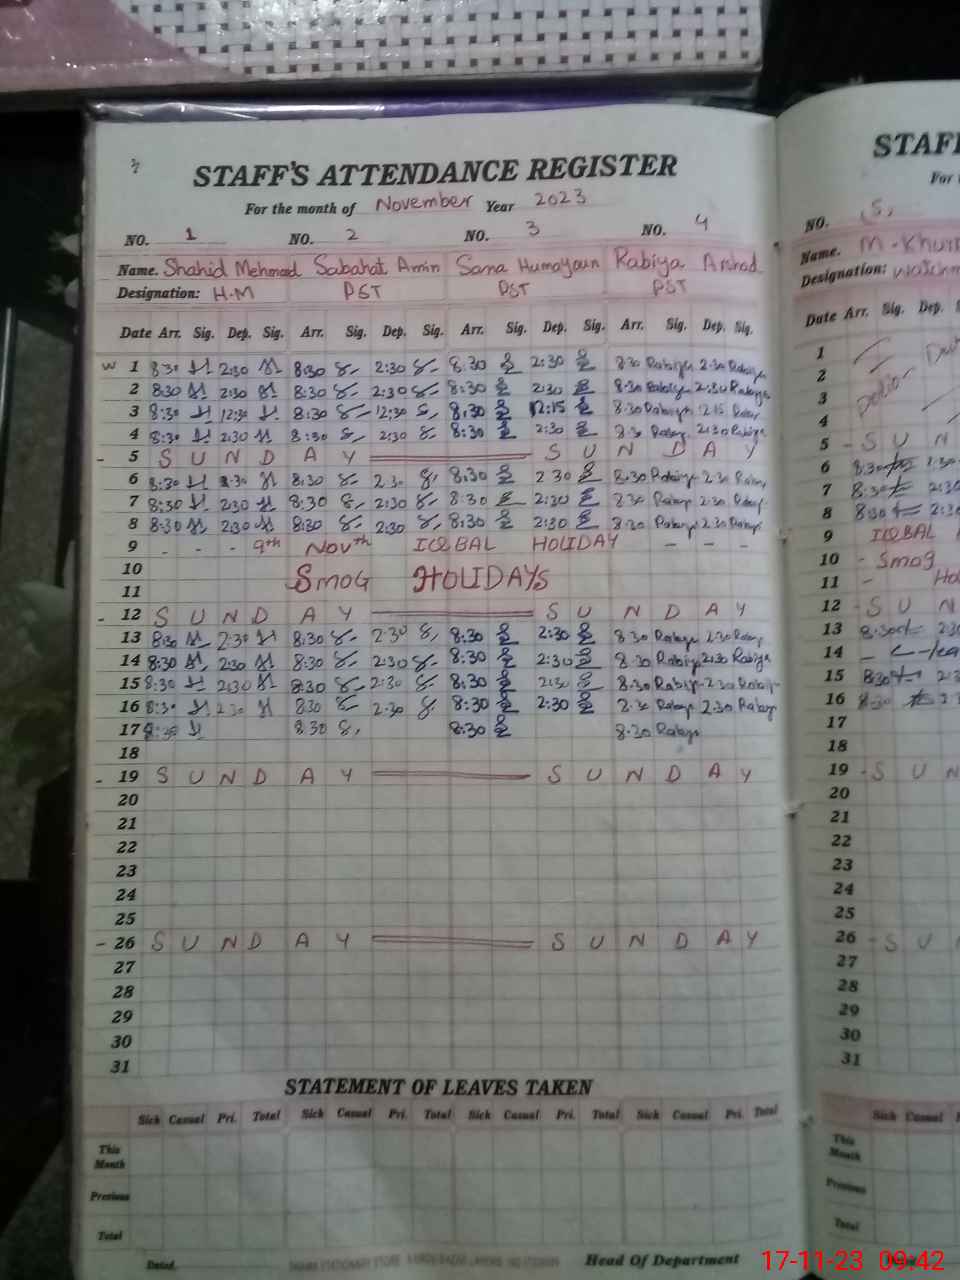 STAFF'S ATTENDANCE REGISTER
For the month of November Year 2023
NO. 1 NO. 2 NO. 3 NO. 4
Name. Shahid Mehmood Sabahat Amin Sana Humayoun Rabiya Arshad
Designation: H.M PST PST PST
Date Arr. Sig. Dep. Sig. Arr. Sig. Dep. Sig. Arr. Sig. Dep. Sig. Arr. Sig. Dep. Sig.
W 1 8:30 2:30 8:30 2:30 8:30 2:30 8:30 Rabiya 2:30 Rabiya
2 8:30 2:30 8:30 2:30 8:30 2:30 8:30 Rabiya 2:30 Rabiya
3 8:30 12:30 8:30 12:30 8:30 12:15 8:30 Rabiya 12:15
4 8:30 2:30 8:30 2:30 8:30 2:30 8:30 Rabiya 2:30 Rabiya
- 5 S U N D A Y S U N D A Y
6 8:30 8:30 8:30 2:30 8:30 2:30 8:30 Rabiya 2:30 Rabiya
7 8:30 2:30 8:30 2:30 8:30 2:30 8:30 Rabiya 2:30 Rabiya
8 8:30 2:30 8:30 2:30 8:30 2:30 8:30 Rabiya 2:30 Rabiya
9 - - - 9th Novth IQBAL HOLIDAY - - -
10 SMOG HOLIDAYS
11
- 12 S U N D A Y S U N D A Y
13 8:30 2:30 8:30 2:30 8:30 2:30 8:30 Rabiya 2:30 Rabiya
14 8:30 2:30 8:30 2:30 8:30 2:30 8:30 Rabiya 2:30 Rabiya
15 8:30 2:30 8:30 2:30 8:30 2:30 8:30 Rabiya 2:30 Rabiya
16 8:30 2:30 8:30 2:30 8:30 2:30 2:30 Rabiya 2:30 Rabiya
17 8:30 8:30 8:30 8:30 Rabiya
18
- 19 S U N D A Y S U N D A Y
20
21
22
23
24
25
- 26 S U N D A Y S U N D A Y
27
28
29
30
31
STATEMENT OF LEAVES TAKEN
Sick Casual Pri. Total Sick Casual Pri. Total Sick Casual Pri. Total Sick Casual Pri. Total
This Month
Previous
Total
Dated. Head Of Department
STAF
For
NO. 5,
Name. M. Khur
Designation: Watchm
Date Arr. Sig. Dep.
1
2
3
4
5 - S U N
6 8:30 2:30
7 8:30 2:30
8 8:30 2:30
9 IQBAL
10 - Smog
11 - Ho
12 - S U N
13 8:30
14
15 8:30
16 8:30
17
18
19 - S U N
20
21
22
23
24
25
26 - S U
27
28
29
30
31
Sick Casual
This Month
Previous
Total
17-11-23 09:42